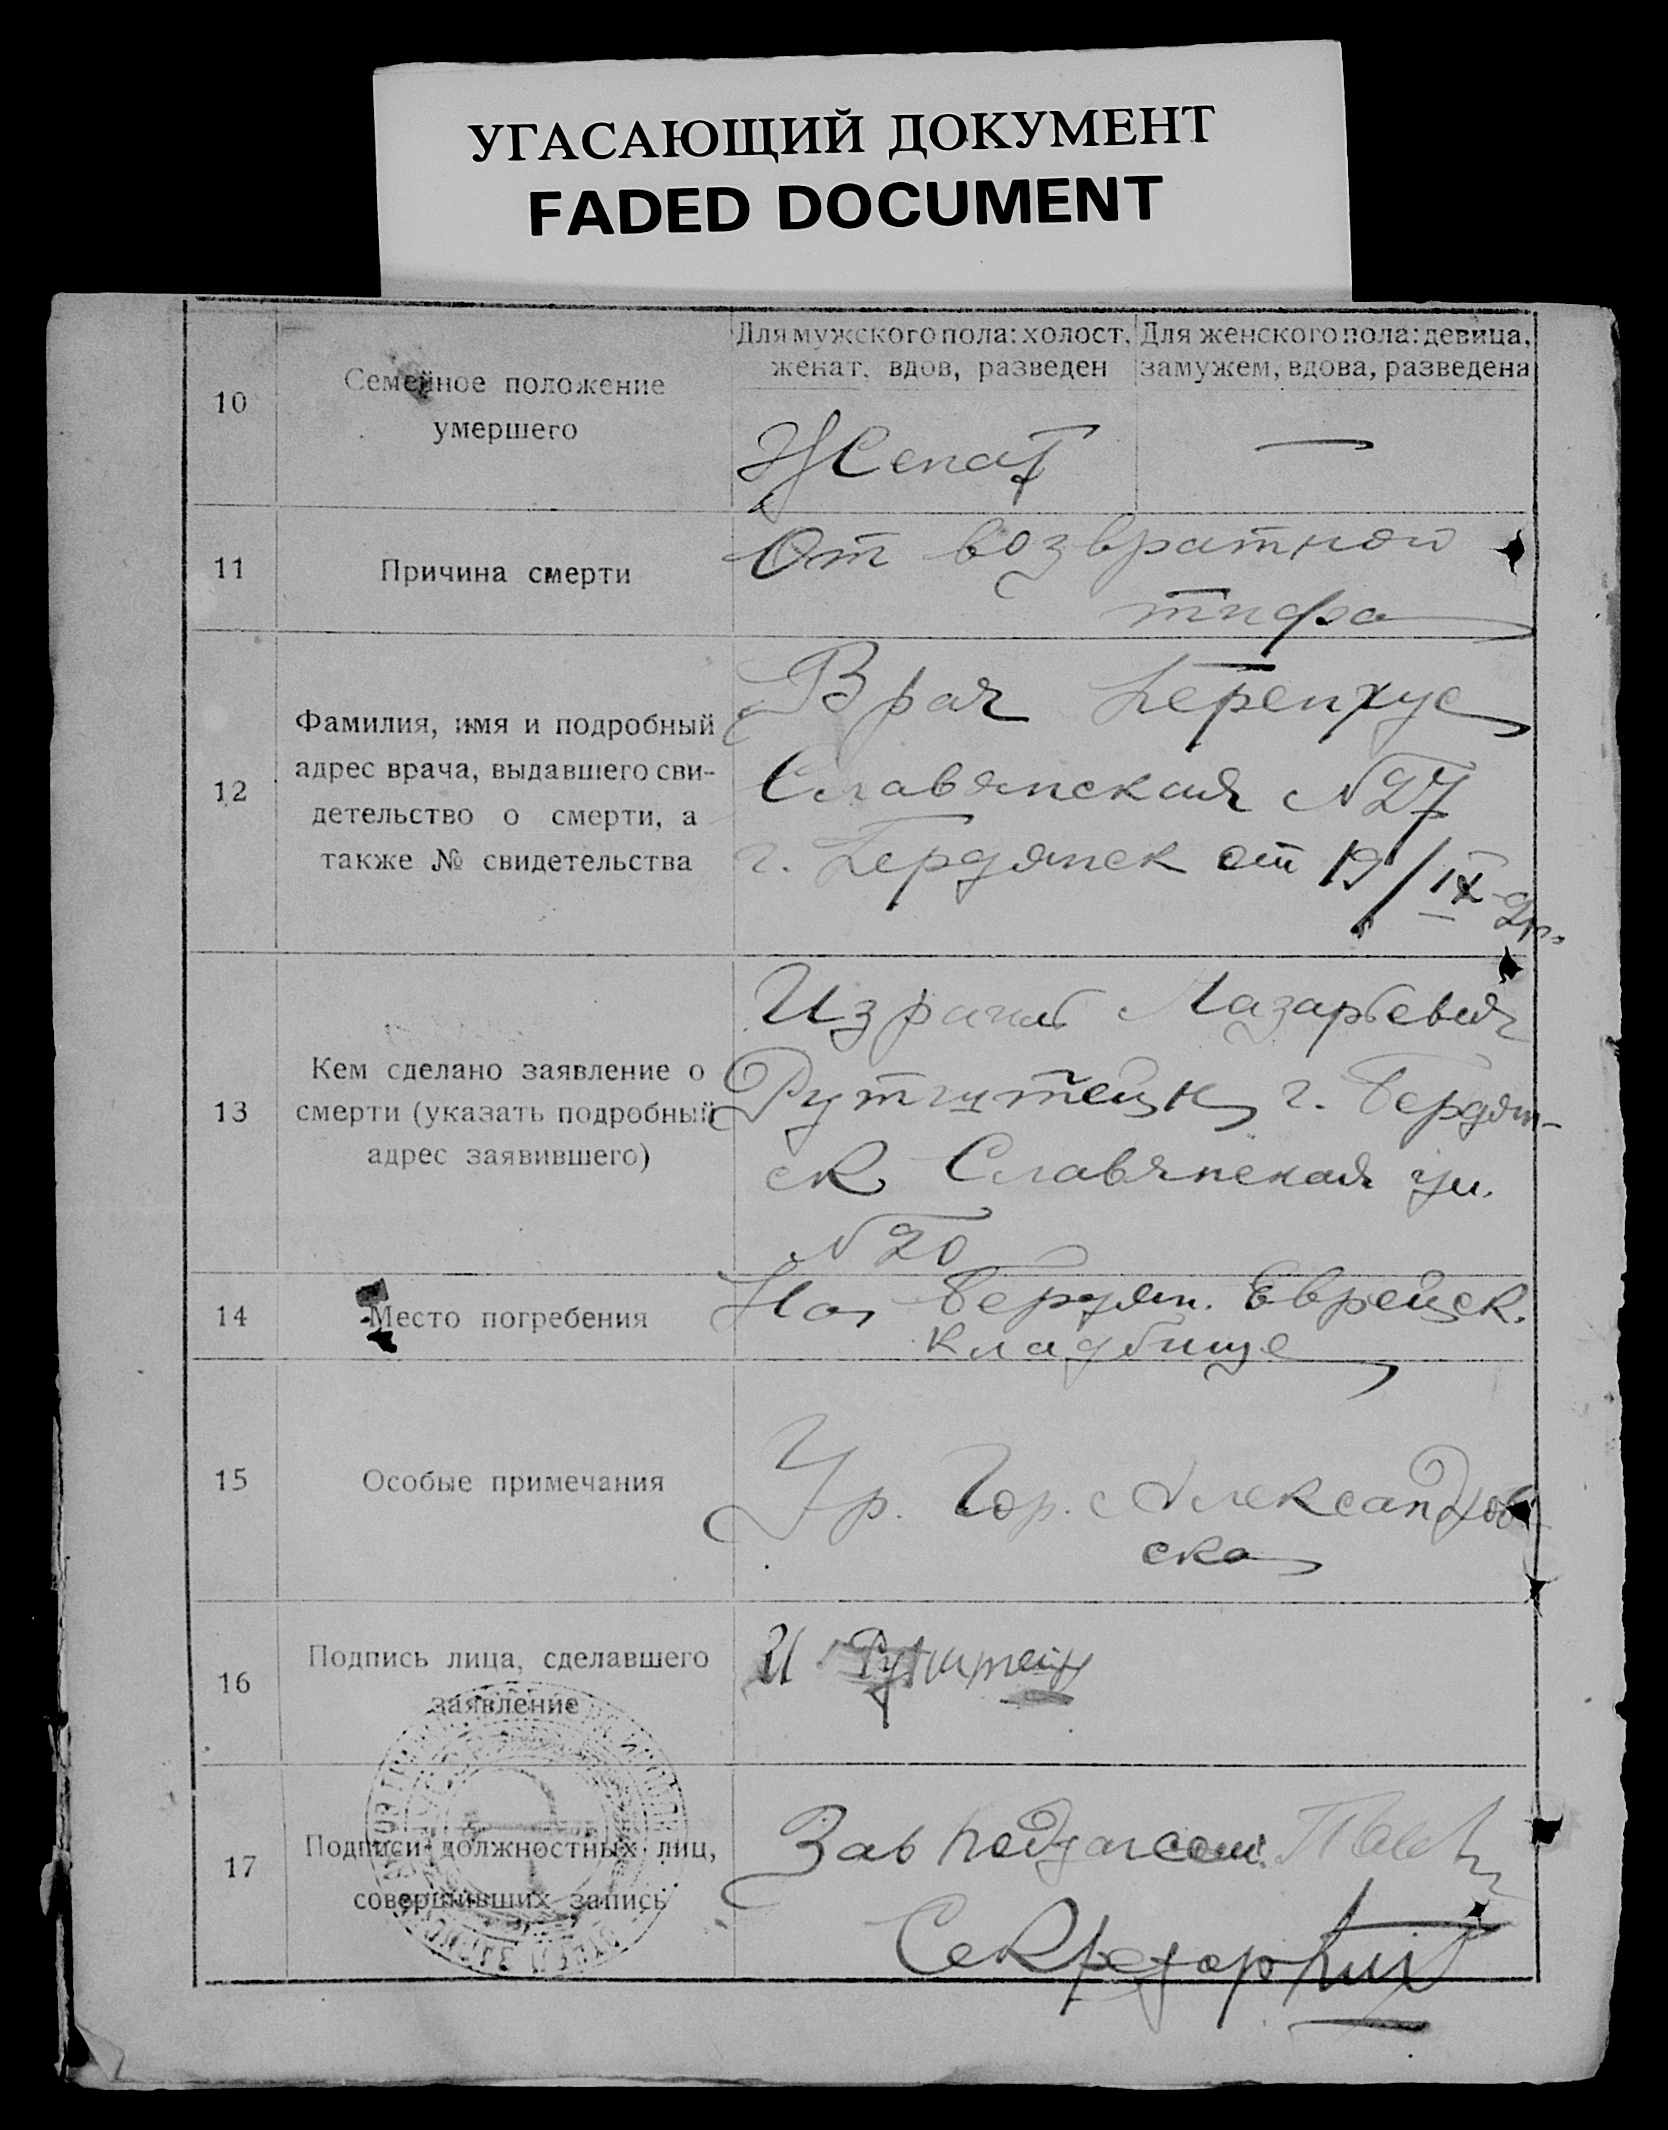 УГАСАЮЩИЙ ДОКУМЕНТ
FADED DOCUMENT
10
Семейное положение
умершего
Для мужского пола: холост,
женат, вдов, разведен
Для женского пола: девица,
замужем, вдова, разведена
Женат
—
11
Причина смерти
От возвратной
тифа
12
Фамилия, имя и подробный
адрес врача, выдавшего сви-
детельство о смерти, а
также № свидетельства
Врач
Славянская №27
г. Бердянск от 19/IX
13
Кем сделано заявление о
смерти (указать подробный
адрес заявившего)
Израиль Лазарьевич
Рутштейн г. Бердян-
ск Славянская ул.
№20
14
Место погребения
На Бердян. Еврейск.
кладбище
15
Особые примечания
Ур. Гор. Александров-
ска
16
Подпись лица, сделавшего
заявление
И. Рутштейн
17
Подписи должностных лиц,
совершивших запись
Зав
Секретарь